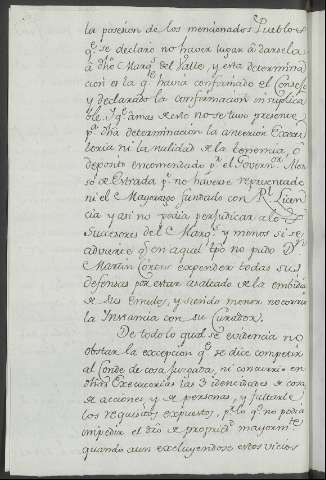 la posesion de los mencionados Pueblos
qe. se declaro no haver lugar à darsela
à dho Marqs. del Valle, y esta determina
cion es la qe. havia confirmado el Consejo
y declarado la confirmacion insuplica
ble. Y qe. amas de esto no se tuvo presente
pa. dha determinacion la anterior Execu
toria ni la nulidad de la tenencia, ó
deposito encomendado pr. el Governor. Alon
so de Estrada pr. no haverse representado
ni el Mayorazgo fundado con Rl. Licen
cia y asi no podia perjudicar a los
Succesores del Marqs. y menos si se
advierte qe. en aquel tpo no pudo Dn.
Martin Cortes expender todas sus
defensas por estar asaltado de la embidia
de sus Emulos, y siendo menor no corrio
la Instancia con su Curador.
De todo lo qual se evidencia no
obstar la excepcion qe. se dice competir
al Conde de cosa juzgada, ni concurrir en
dhas Executorias las 3 identidades de cosa
de acciones, y de personas, y faltarle
los requisitos expuestos, pr. lo qe. no podia
impedir el dro de propried. mayormte.
quando aun excluyendose estos vicios